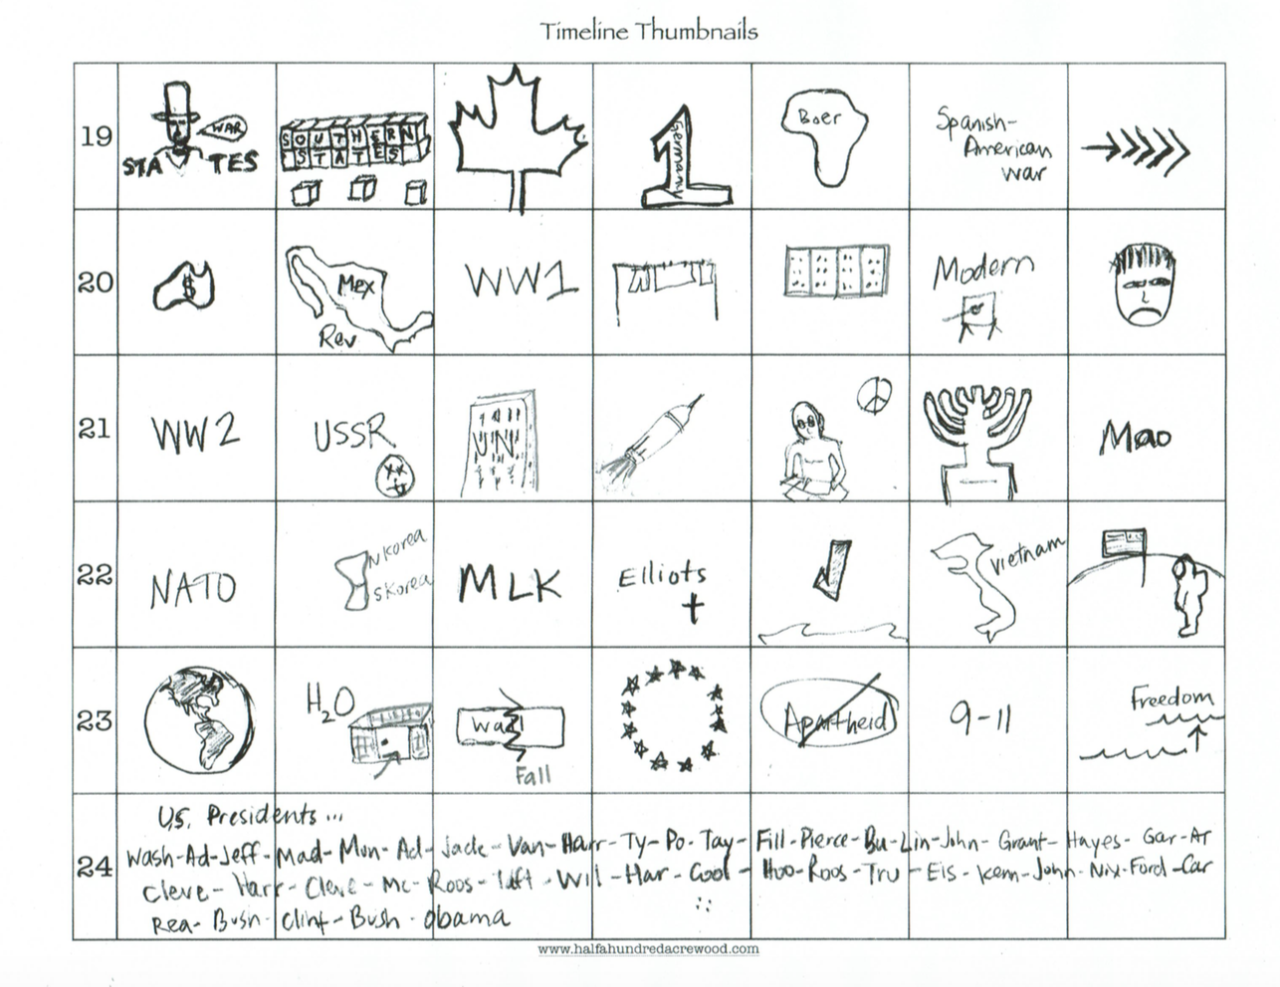 Timeline Thumbnails
19
WAR
STA TES
SOUTHERN
STATES
Germany
1
Boer
Spanish-
American
war
20
$
Mex
Rev
WW1
Modern
21
WW2
USSR
UN
Mao
22
NATO
N Korea
S Korea
MLK
Elliots
Vietnam
23
H₂O
Wall
Fall
Apartheid
9-11
Freedom
24
U.S. Presidents...
Wash-Ad-Jeff-Mad-Mon-Ad-Jack-Van-Harr-Ty-Po-Tay-Fill-Pierce-Bu-Lin-John-Grant-Hayes-Gar-Ar
Cleve-Harr-Cleve-Mc-Roos-Taft-Wil-Har-Cool-Hoo-Roos-Tru-Eis-Kenn-John-Nix-Ford-Car
Rea-Bush-Clint-Bush-Obama
www.halfahundredacrewood.com